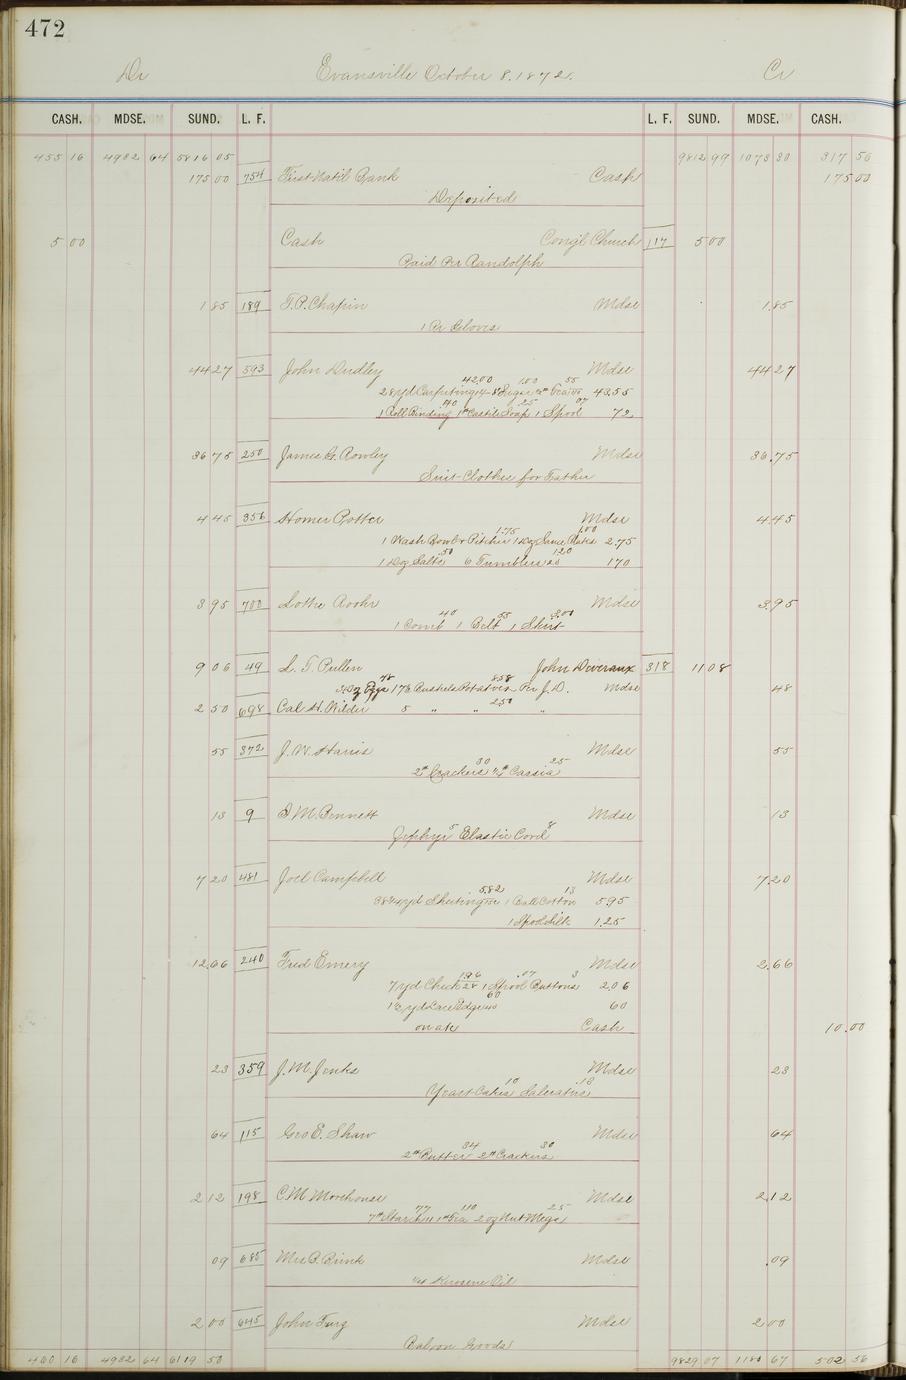 472
Dr Evansville October 8. 1872. Cr
CASH. MDSE. SUND. L. F. L. F. SUND. MDSE. CASH.
455 16 4982 64 5816 05 9812 99 1073 80 317 56
175 00 754 First Nat'l Bank Cash 175 00
Deposited
5 00 Cash Cong'l Church 117 5 00
Paid Per Randolph
1 85 189 T. P. Chapin Mdse 1.85
1 Pr Gloves
44 27 593 John Dudley Mdse 44 27
42.00 1.00 55
28 yd Carpeting Sugar Tea 43.55
40 25 07
1 Roll Binding 1 Castile Soap 1 Spool 72
36 75 250 James G. Rowley Mdse 36.75
Suit Clothes for Father
4 45 356 Homer Potter Mdse 4.45
1.75 1.00
1 Wash Bowl & Pitcher 1 Dog Sauce Plates 2.75
50 1.20
1 Dog Salts 6 Tumblers 20 1 70
3 95 700 Mdse 3.95
40 55 3.00
1 Comb 1 Belt 1 Skirt
9 06 49 L. T. Pullen John Deveraux 318 11 08
48 8.58
Bushels Potatoes Per J. D. Mdse 48
2 50 698 Cal H. Wilder 5 " " 2.50 "
55 372 J. W. Harris Mdse 55
30 25
2# Crackers Cassia
13 9 I. M. Bennett Mdse 13
Zephyr 5 Elastic Cord 8
7 20 481 Joel Campbell Mdse 7.20
5.82 13
yd Sheeting 1 Ball Cotton 5.95
1 Spool Silk 1.25
12.66 240 Fred Emery Mdse 2.66
1.96 .07 3
7 yd Check 28 1 Spool Buttons 2.06
60
1½ yd Lace Edge 40 60
on a/c Cash 10.00
23 359 J. M. Jenks Mdse 23
10 .13
Yeast Cakes Saleratus
64 115 Geo E. Shaw Mdse 64
34 30
2# Butter 2# Crackers
2 12 198 C. M. Morehouse Mdse 2.12
77 1.10 25
7# Starch 11 1# Tea 2 oz Nut Megs
09 685 Mrs B. Brink Mdse .09
Kerosene Oil
2 00 645 John Mdse 2 00
Goods
460 16 4982 64 6119 50 9829 07 1180 67 502 56